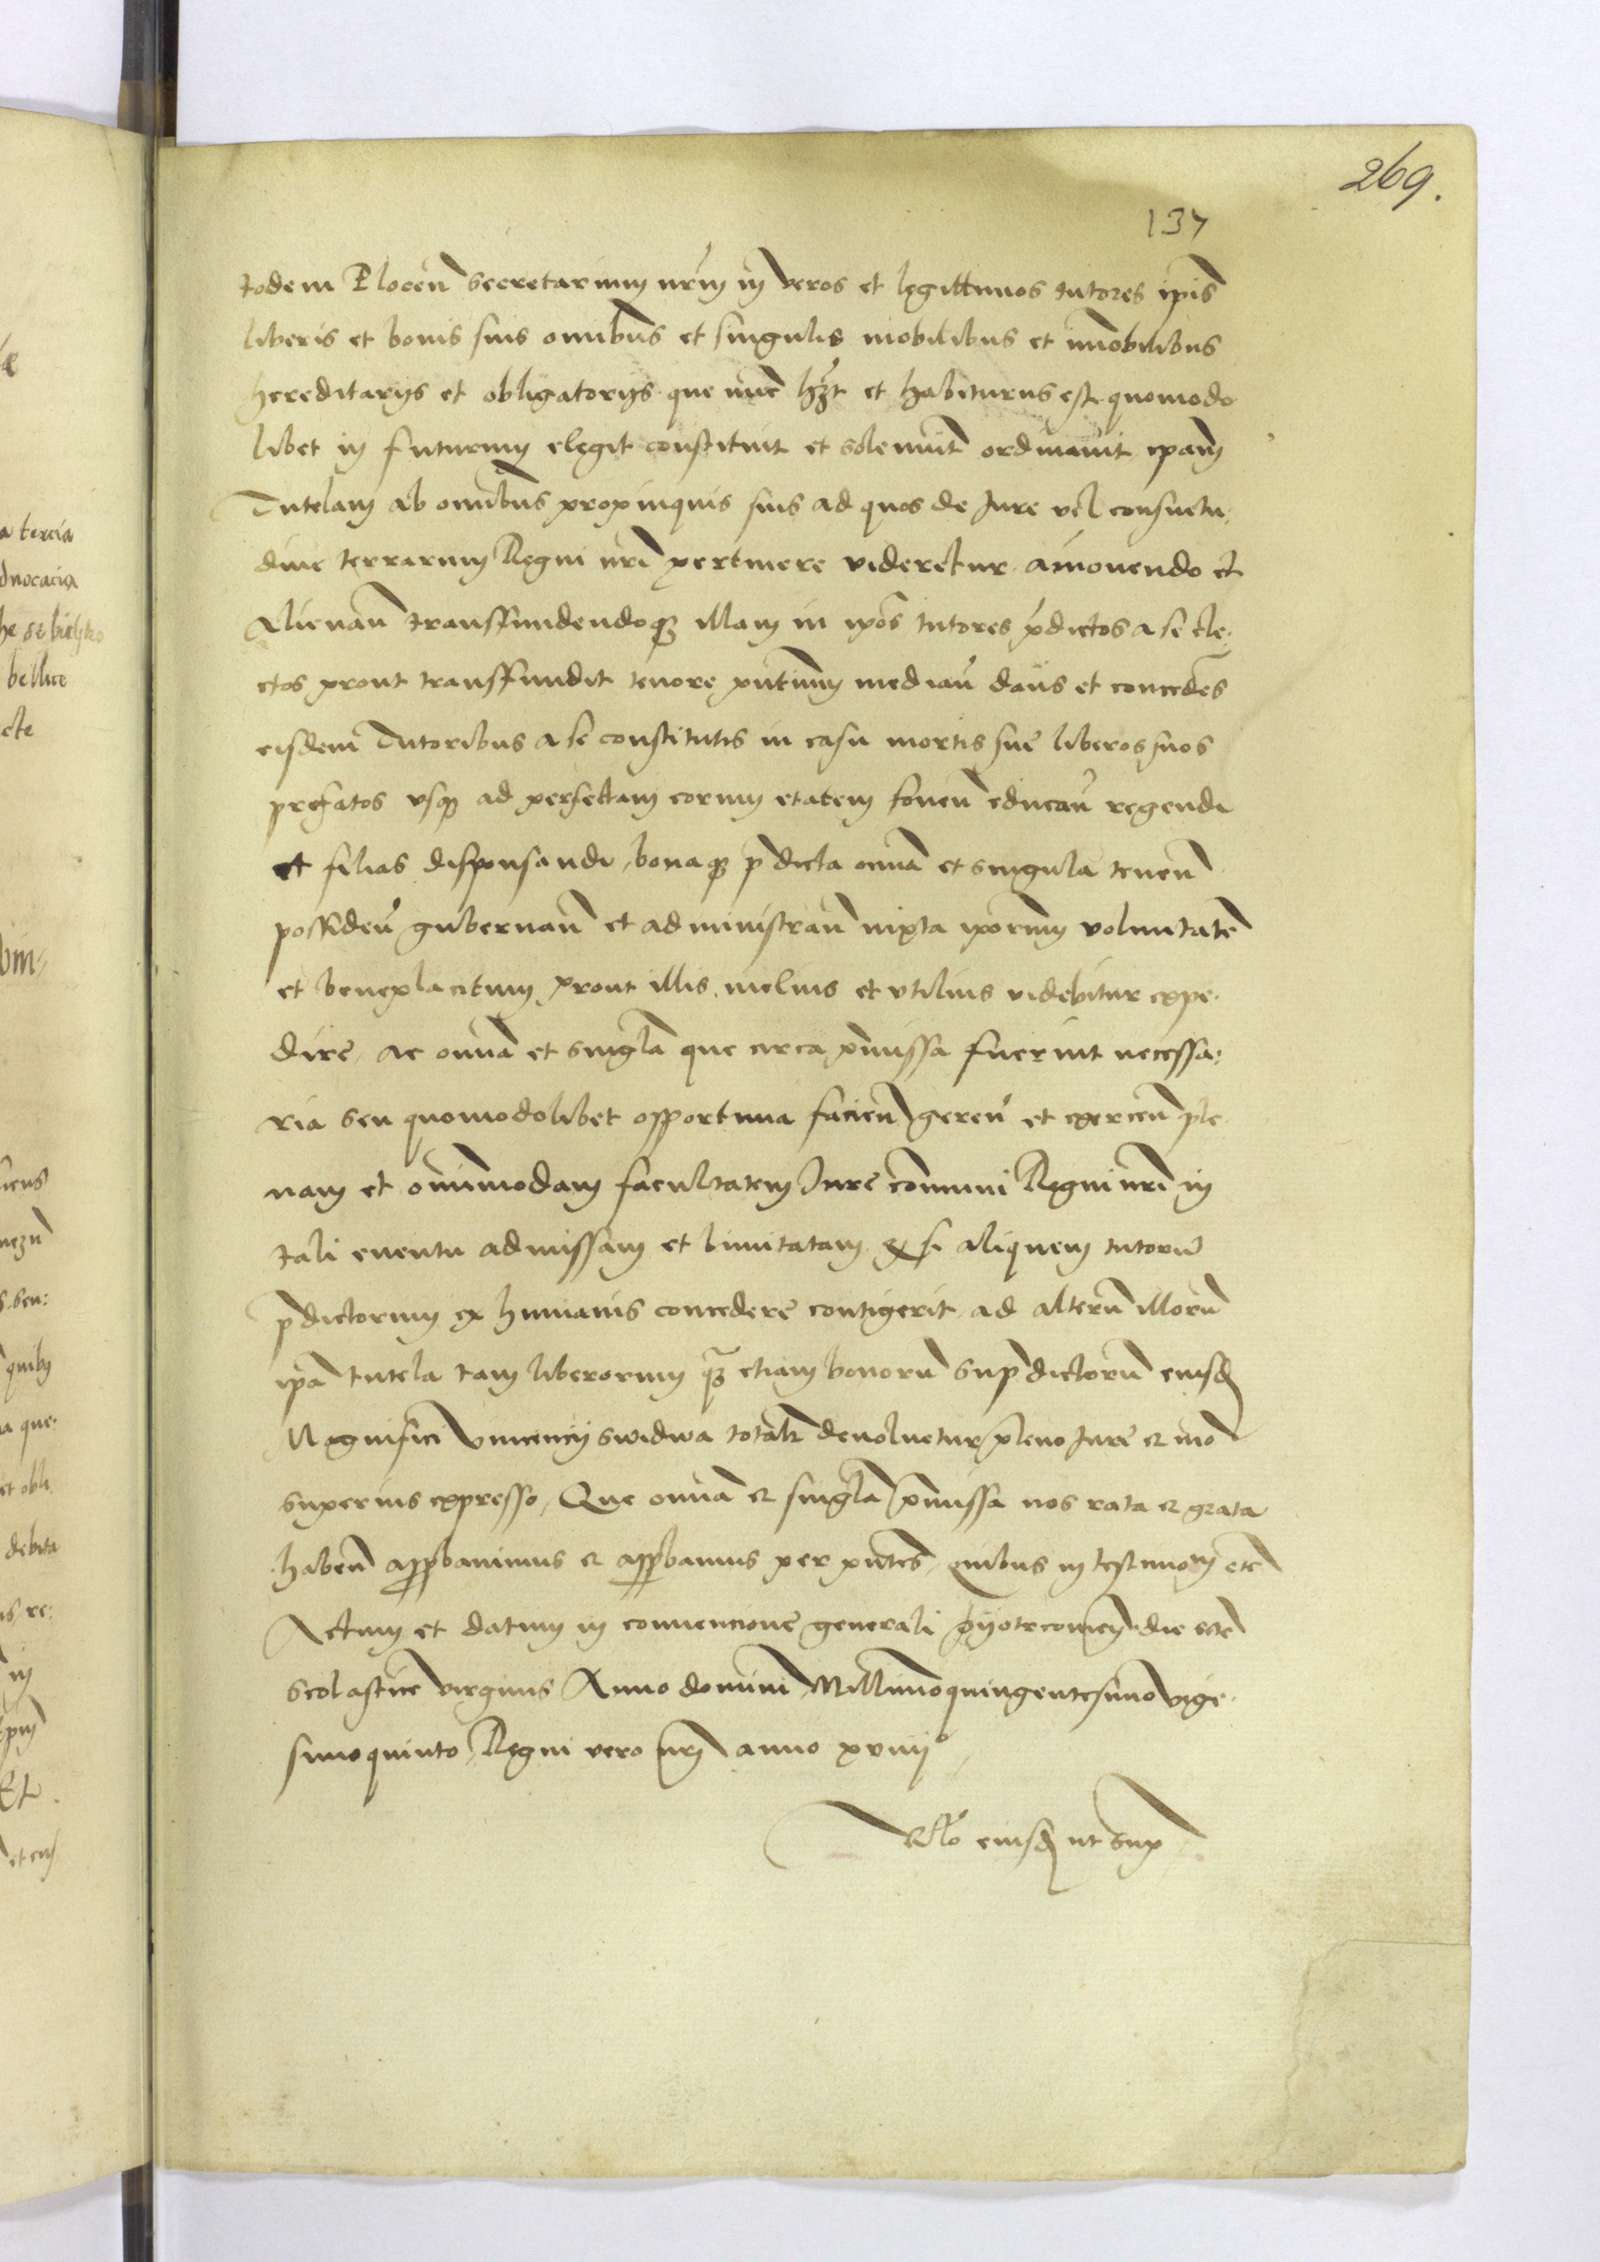 269.
137
todem Plocen̄ secretarium nr̄m in veros et legittimos tutores ip̄is
liberis et bonis suis om̄ibus et singulis mobilibus et im̄obilibus
hereditarijs et obligatorijs que nūc hꝫt et habiturus est quomodo
libet in futurum elegit constituit et solennit̄ ordinauit ip̄am
Tutelam ab om̄ibus propinquis suis ad quos de Jure vel consuetu
dine terrarum Regni nr̄i pertinere videretur amouendo et
Alienan̄ transffundendoqꝫ illam in ip̄os tutores p̄dictos a se ele
ctos prout transffundit tenore pn̄tium median̄ dans et concedēs
eisdem Tutoribus a se constitutis in casu mortis sue liberos suos
prefatos vsqꝫ ad perfectam eorum etatem fouen̄ educan̄ regendi
et filias disponsandi, bonaqꝫ p̄dicta om̄ia et singula tenen̄
possiden̄ gubernan̄ et administran̄ iuxta ip̄orum voluntatē
et beneplacitum prout illis melius et vtilius videbitur expe
dire, ac om̄ia et singl̄a que circa p̄missa fuerint necessa:
ria seu quomodolibet opportuna facien̄ geren̄ et exercen̄ ple
nam et om̄imodam facultatem Jure com̄uni Regni nr̄i in
tali euentu admissam et limitatam qꝫ si aliquem tutorū
p̄dictorum ex humanis concedere contigerit ad alterū illorū
ip̄a tutela tam liberorum qꝫ etiam bonorū sup̄dictorū eiusd̄
Magnifici Vincencij Swidwa totalr̄ deuoluetur pleno Jure et mō
superius expresso, Que om̄ia et singl̄a p̄missa nos rata et grata
haben̄ app̄bauimus et app̄bamus per pn̄tes, quibus in testimoīm etc̄
Actum et datum in conuencione generali pijotrcouien̄ die scē
Scolastice virginis Anno domini Millesimoquingentesimo vige
simoquinto, Regni vero nr̄i anno xviiij°
Rl̄o eiusd̄ ut sup̄